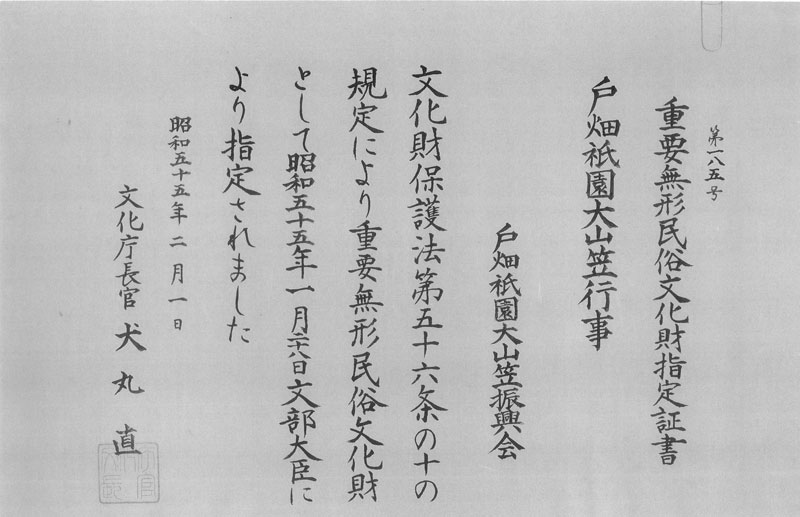 第一八五号
重要無形民俗文化財指定証書
戸畑祇園大山笠行事
戸畑祇園大山笠振興会
文化財保護法第五十六条の十の
規定により重要無形民俗文化財
として昭和五十五年一月二八日文部大臣に
より指定されました
昭和五十五年二月一日
文化庁長官 犬丸直